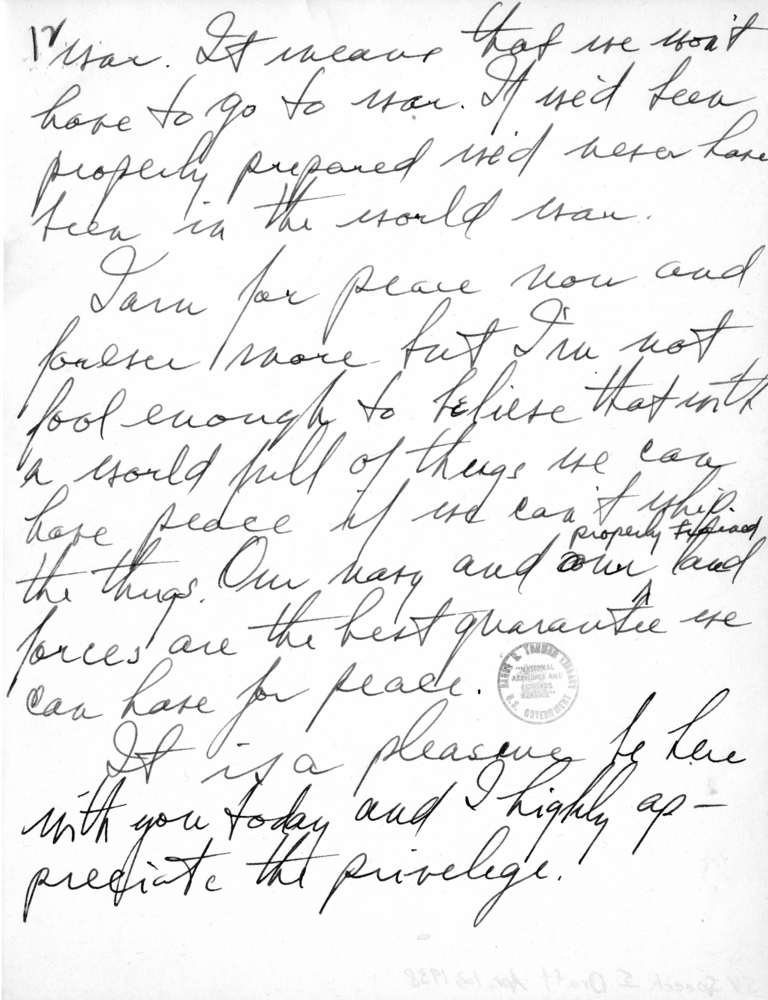 12
war. It means that we won't
have to go to war. If we'd been
properly prepared we'd never have
been in the world war.
I am for peace now and
forever more but I'm not
fool enough to believe that with
a world full of thugs we can
have peace if we can't whip
the thugs. Our navy and our properly trained land
forces are the best guarantee we
can have for peace.
HARRY S. TRUMAN LIBRARY
"NATIONAL
ARCHIVES AND
RECORDS
SERVICE"
U.S. GOVERNMENT
It is a pleasure to be here
with you today and I highly ap-
preciate the privelege.